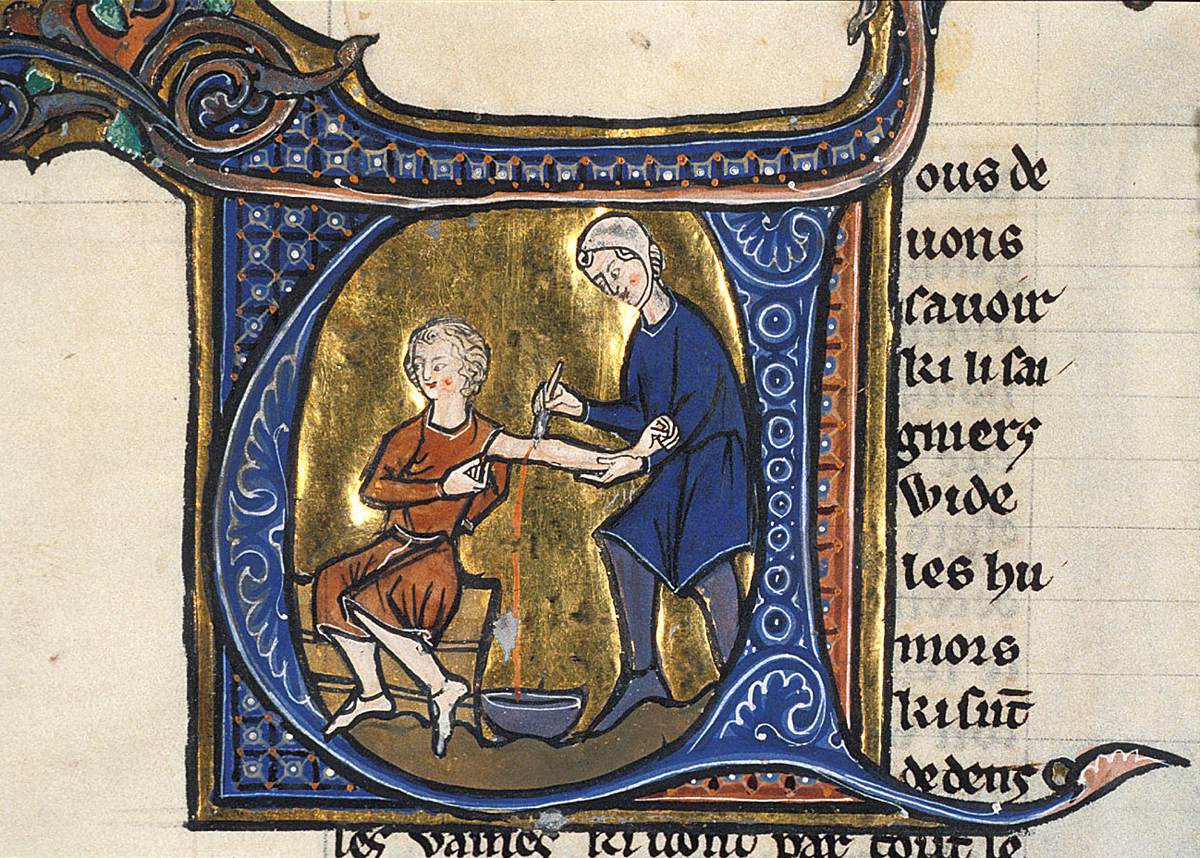 ous de
uons
sauoir
ki li sai
gniers
wide
les hu
mors
ki sūt
dedens
les vaines ki uont par tout le